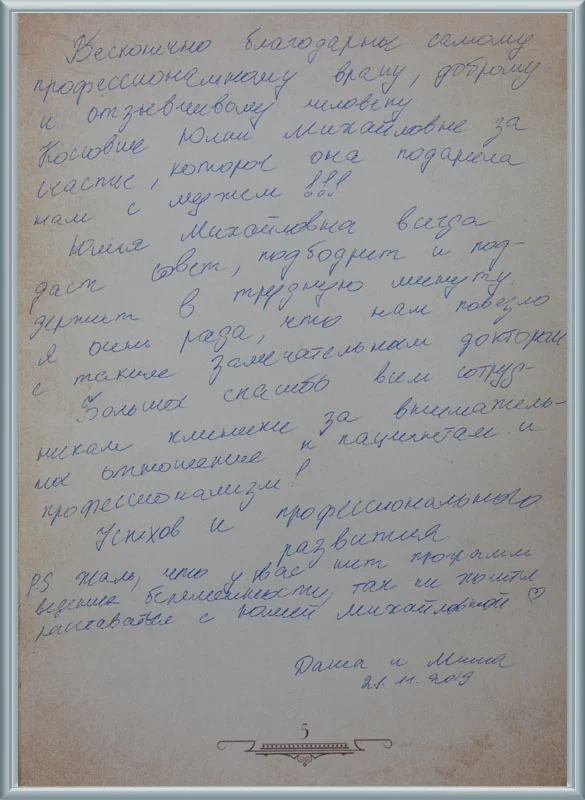 Бесконечно благодарны самому
профессиональному врачу, доброму
и отзывчивому человеку
Юлии Михайловне за
счастье, которое она подарила
нам с мужем !!!
Юлия Михайловна всегда
даст совет, подбодрит и под-
держит в трудную минуту.
Я очень рада, что нам повезло
с таким замечательным доктором
Большое спасибо всем сотруд-
никам клиники за вниматель-
ное отношение к пациентам и
профессионализм!
Успехов и профессионального
развития
P.S. Жаль, что у вас нет программ
ведения беременности, так не хочется
расставаться с Юлией Михайловной ♡
Даша и Миша
21.11.2019
5